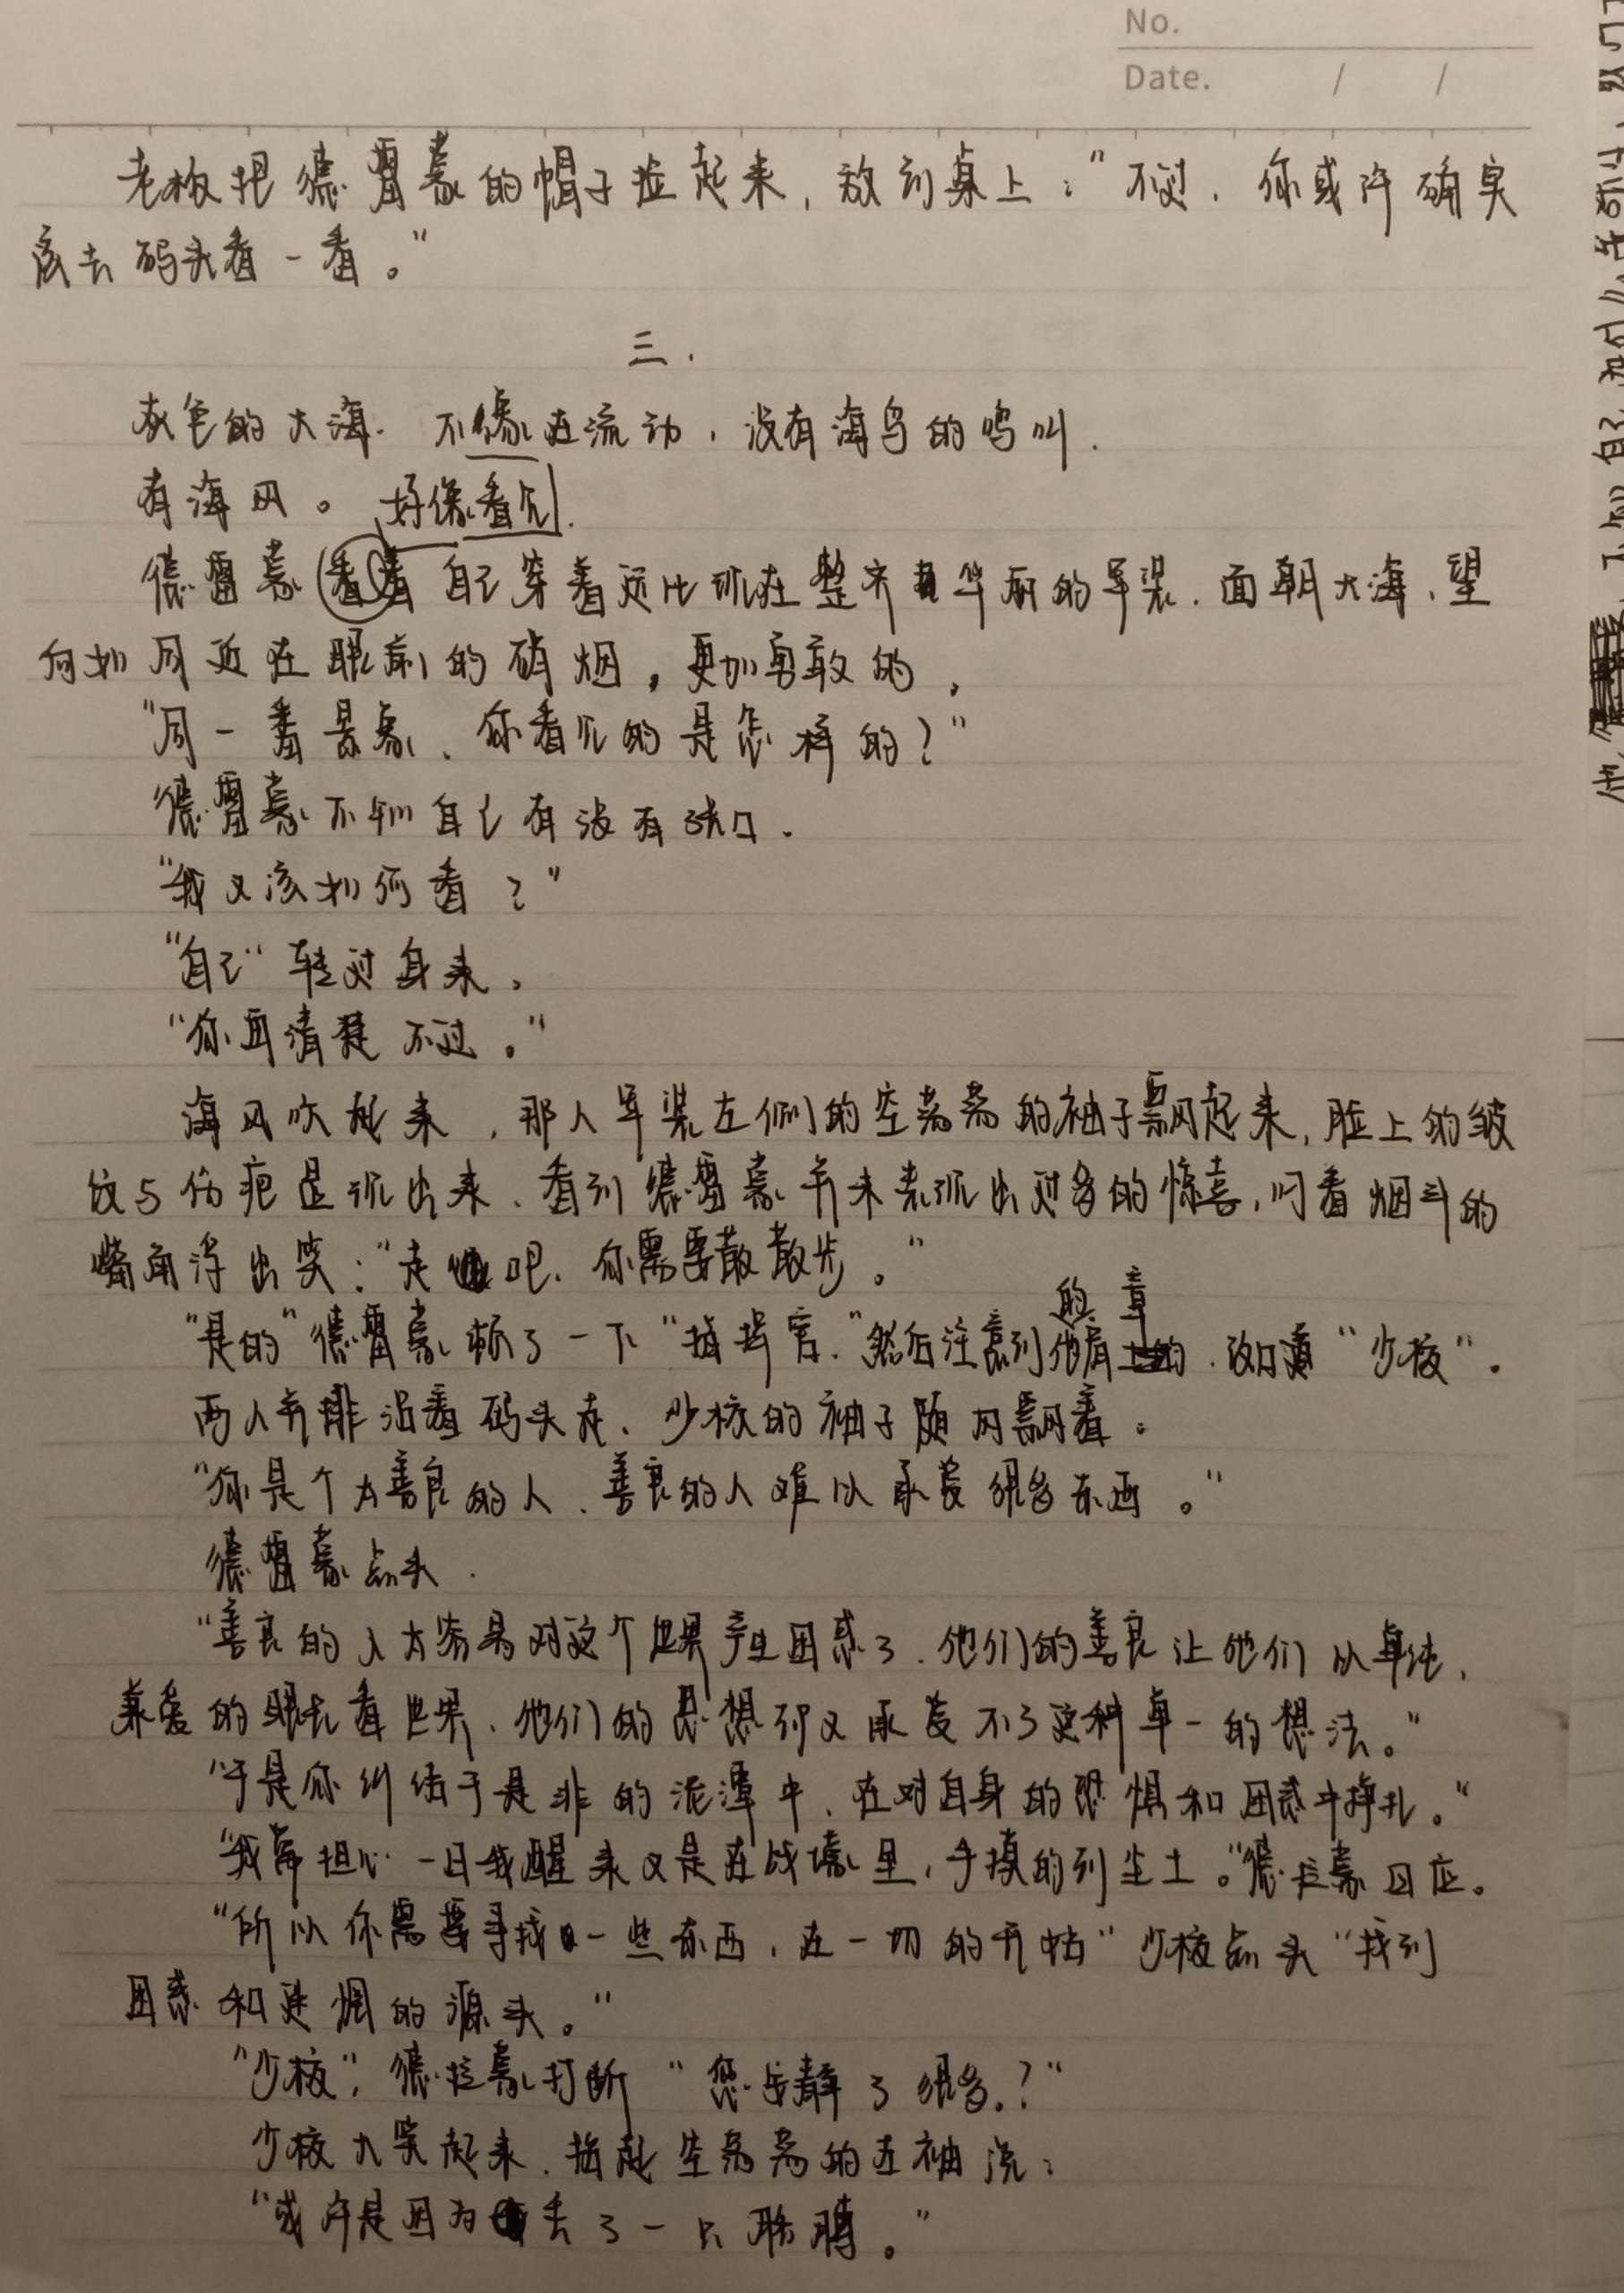 No.
Date. / /
老板把德雷蒙的帽子捡起来，放到桌上："不过，你或许确实
该去码头看一看。"
三.
灰色的大海. 不像在流动，没有海鸟的鸣叫.
有海风。好像看见
德雷蒙看着自己穿着远比现在整齐华丽的军装，面朝大海，望
向如同近在眼前的硝烟，更加勇敢的，
"同一番景象、你看见的是怎样的？"
德雷蒙不知自己有没有张口.
"我又该如何看？"
"自己"转过身来，
"你再清楚不过。"
海风吹起来，那人军装左侧的空荡荡的袖子飘起来，脸上的皱
纹与伤疤显现出来、看到德雷蒙并未表现出过多的惊喜，叼着烟斗的
嘴角浮出笑："走吧、你需要散散步。"
"是的"德雷蒙顿了一下"指挥官."然后注意到他肩上的
的章
，改口道"少校"。
两人并排沿着码头走、少校的袖子随风飘着。
"你是个太善良的人、善良的人难以承受很多东西。"
德雷蒙点头.
"善良的人太容易对这个世界产生困惑了、他们的善良让他们以单纯、
兼爱的眼光看世界、他们的思想却又承受不了这种单一的想法。"
"于是你纠结于是非的泥潭中、在对自身的恐惧和困惑中挣扎。"
"我常担心一日我醒来又是在战壕里，手摸的到尘土。"德拉蒙回应。
"所以你需要寻找一些东西，在一切的开始"少校点头"找到
困惑和迷惘的源头。"
"少校"，德拉蒙打断"您安静了很多.？"
少校大笑起来、指起空荡荡的左袖说：
"或许是因为丢了一只胳膊。"